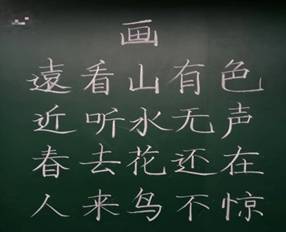 画
遠看山有色
近听水无声
春去花还在
人来鸟不惊